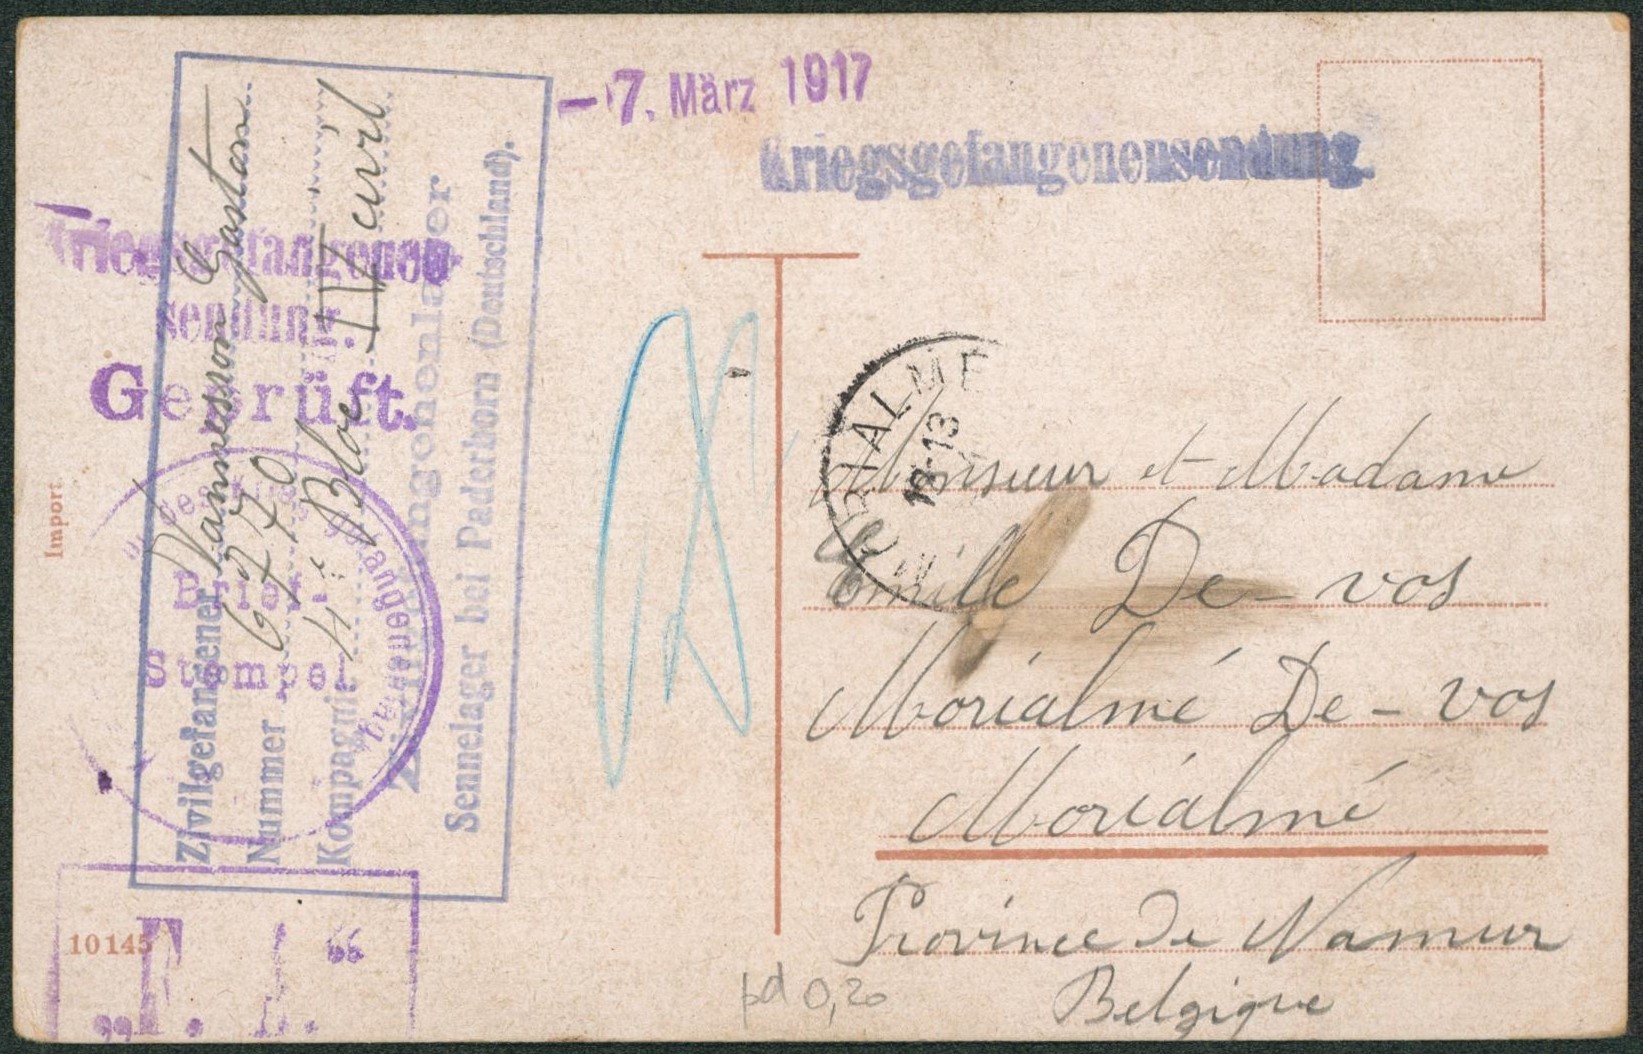 – 7. März 1917
Kriegsgefangenensendung.
Kriegsgefangenen
sendung.
Geprüft.
Brief-
Stempel
Zivilgefangener Vannesson Gaston
Nummer 6770
Kompagnie 4e Bloc IV civil
Zivilgefangenenlager
Sennelager bei Paderborn (Deutschland).
Import
10145
„F. A. “
MORIALMÉ
13
Monsieur et Madame
Emille De-vos
Morialmé De-vos
Morialmé
Province de Namur
Belgique
pd 0,20